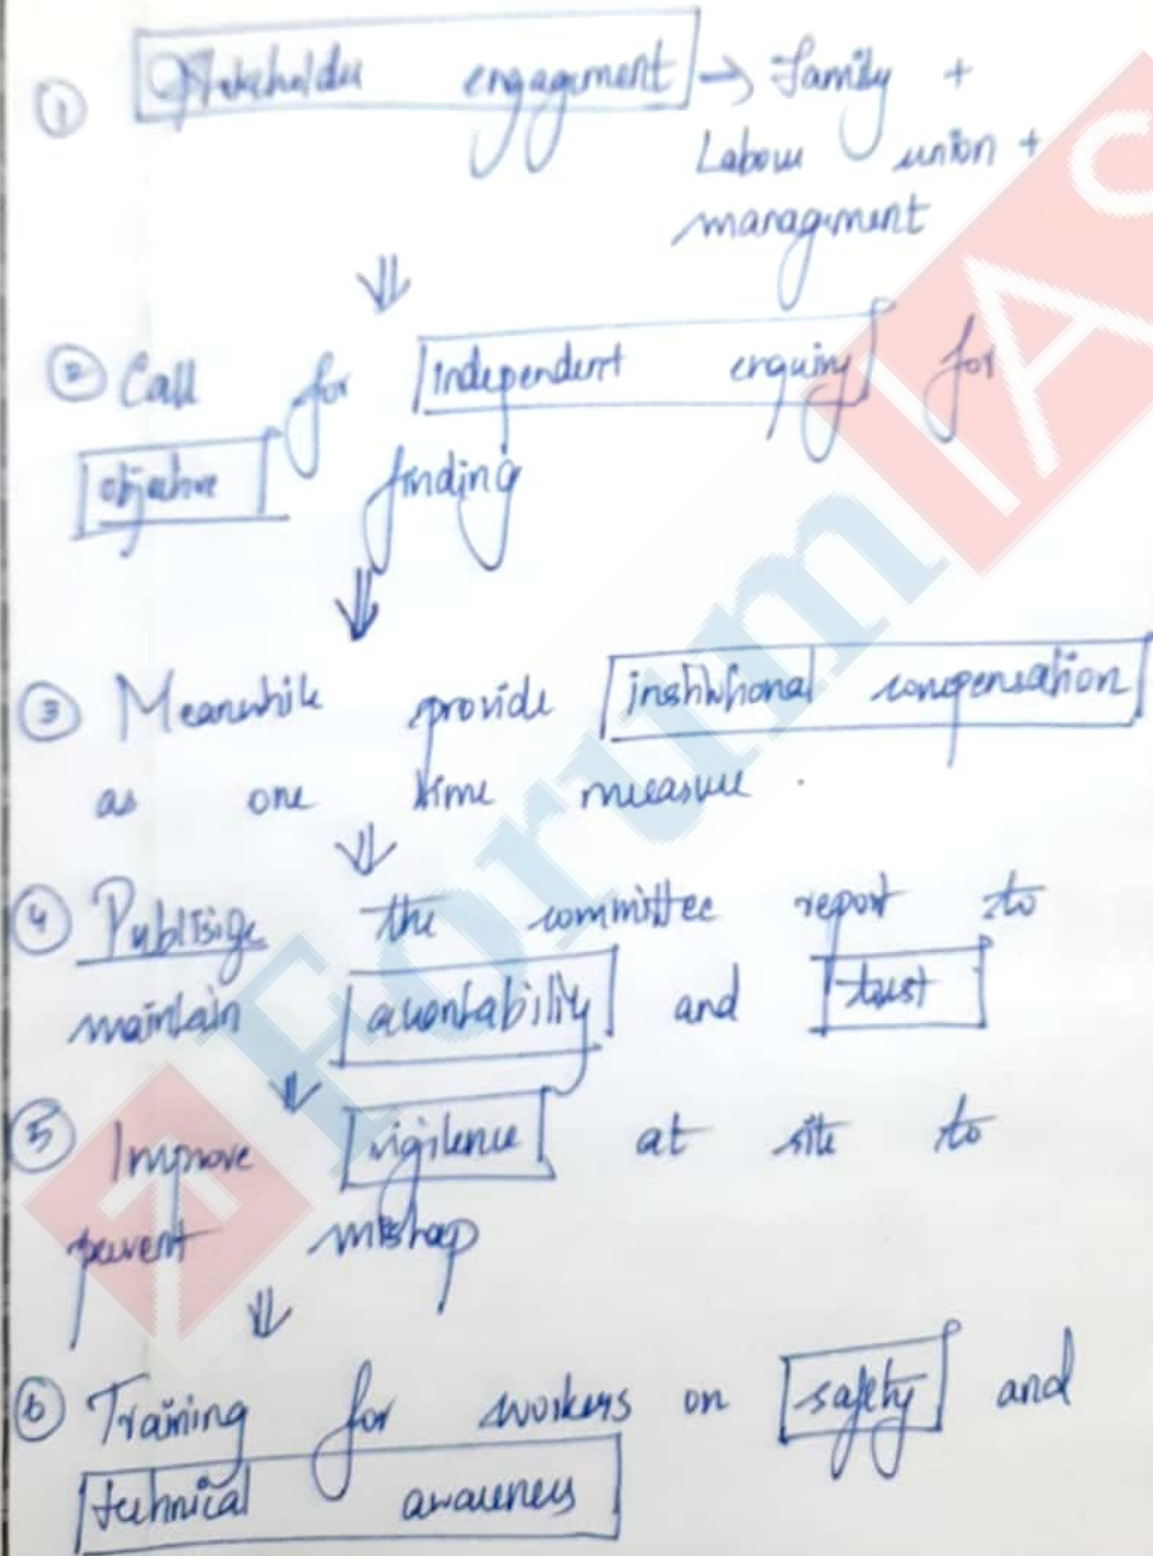 ① Stakeholder engagement → Family +
Labour union +
management
⇓
② Call for independent enquiry for
objective finding
⇓
③ Meanwhile provide institutional compensation
as one time measure.
⇓
④ Publisize the committee report to
maintain accontability and trust
⇓
⑤ Improve vigilence at site to
prevent mishap
⇓
⑥ Training for workers on safety and
technical awareness
Forum IAS